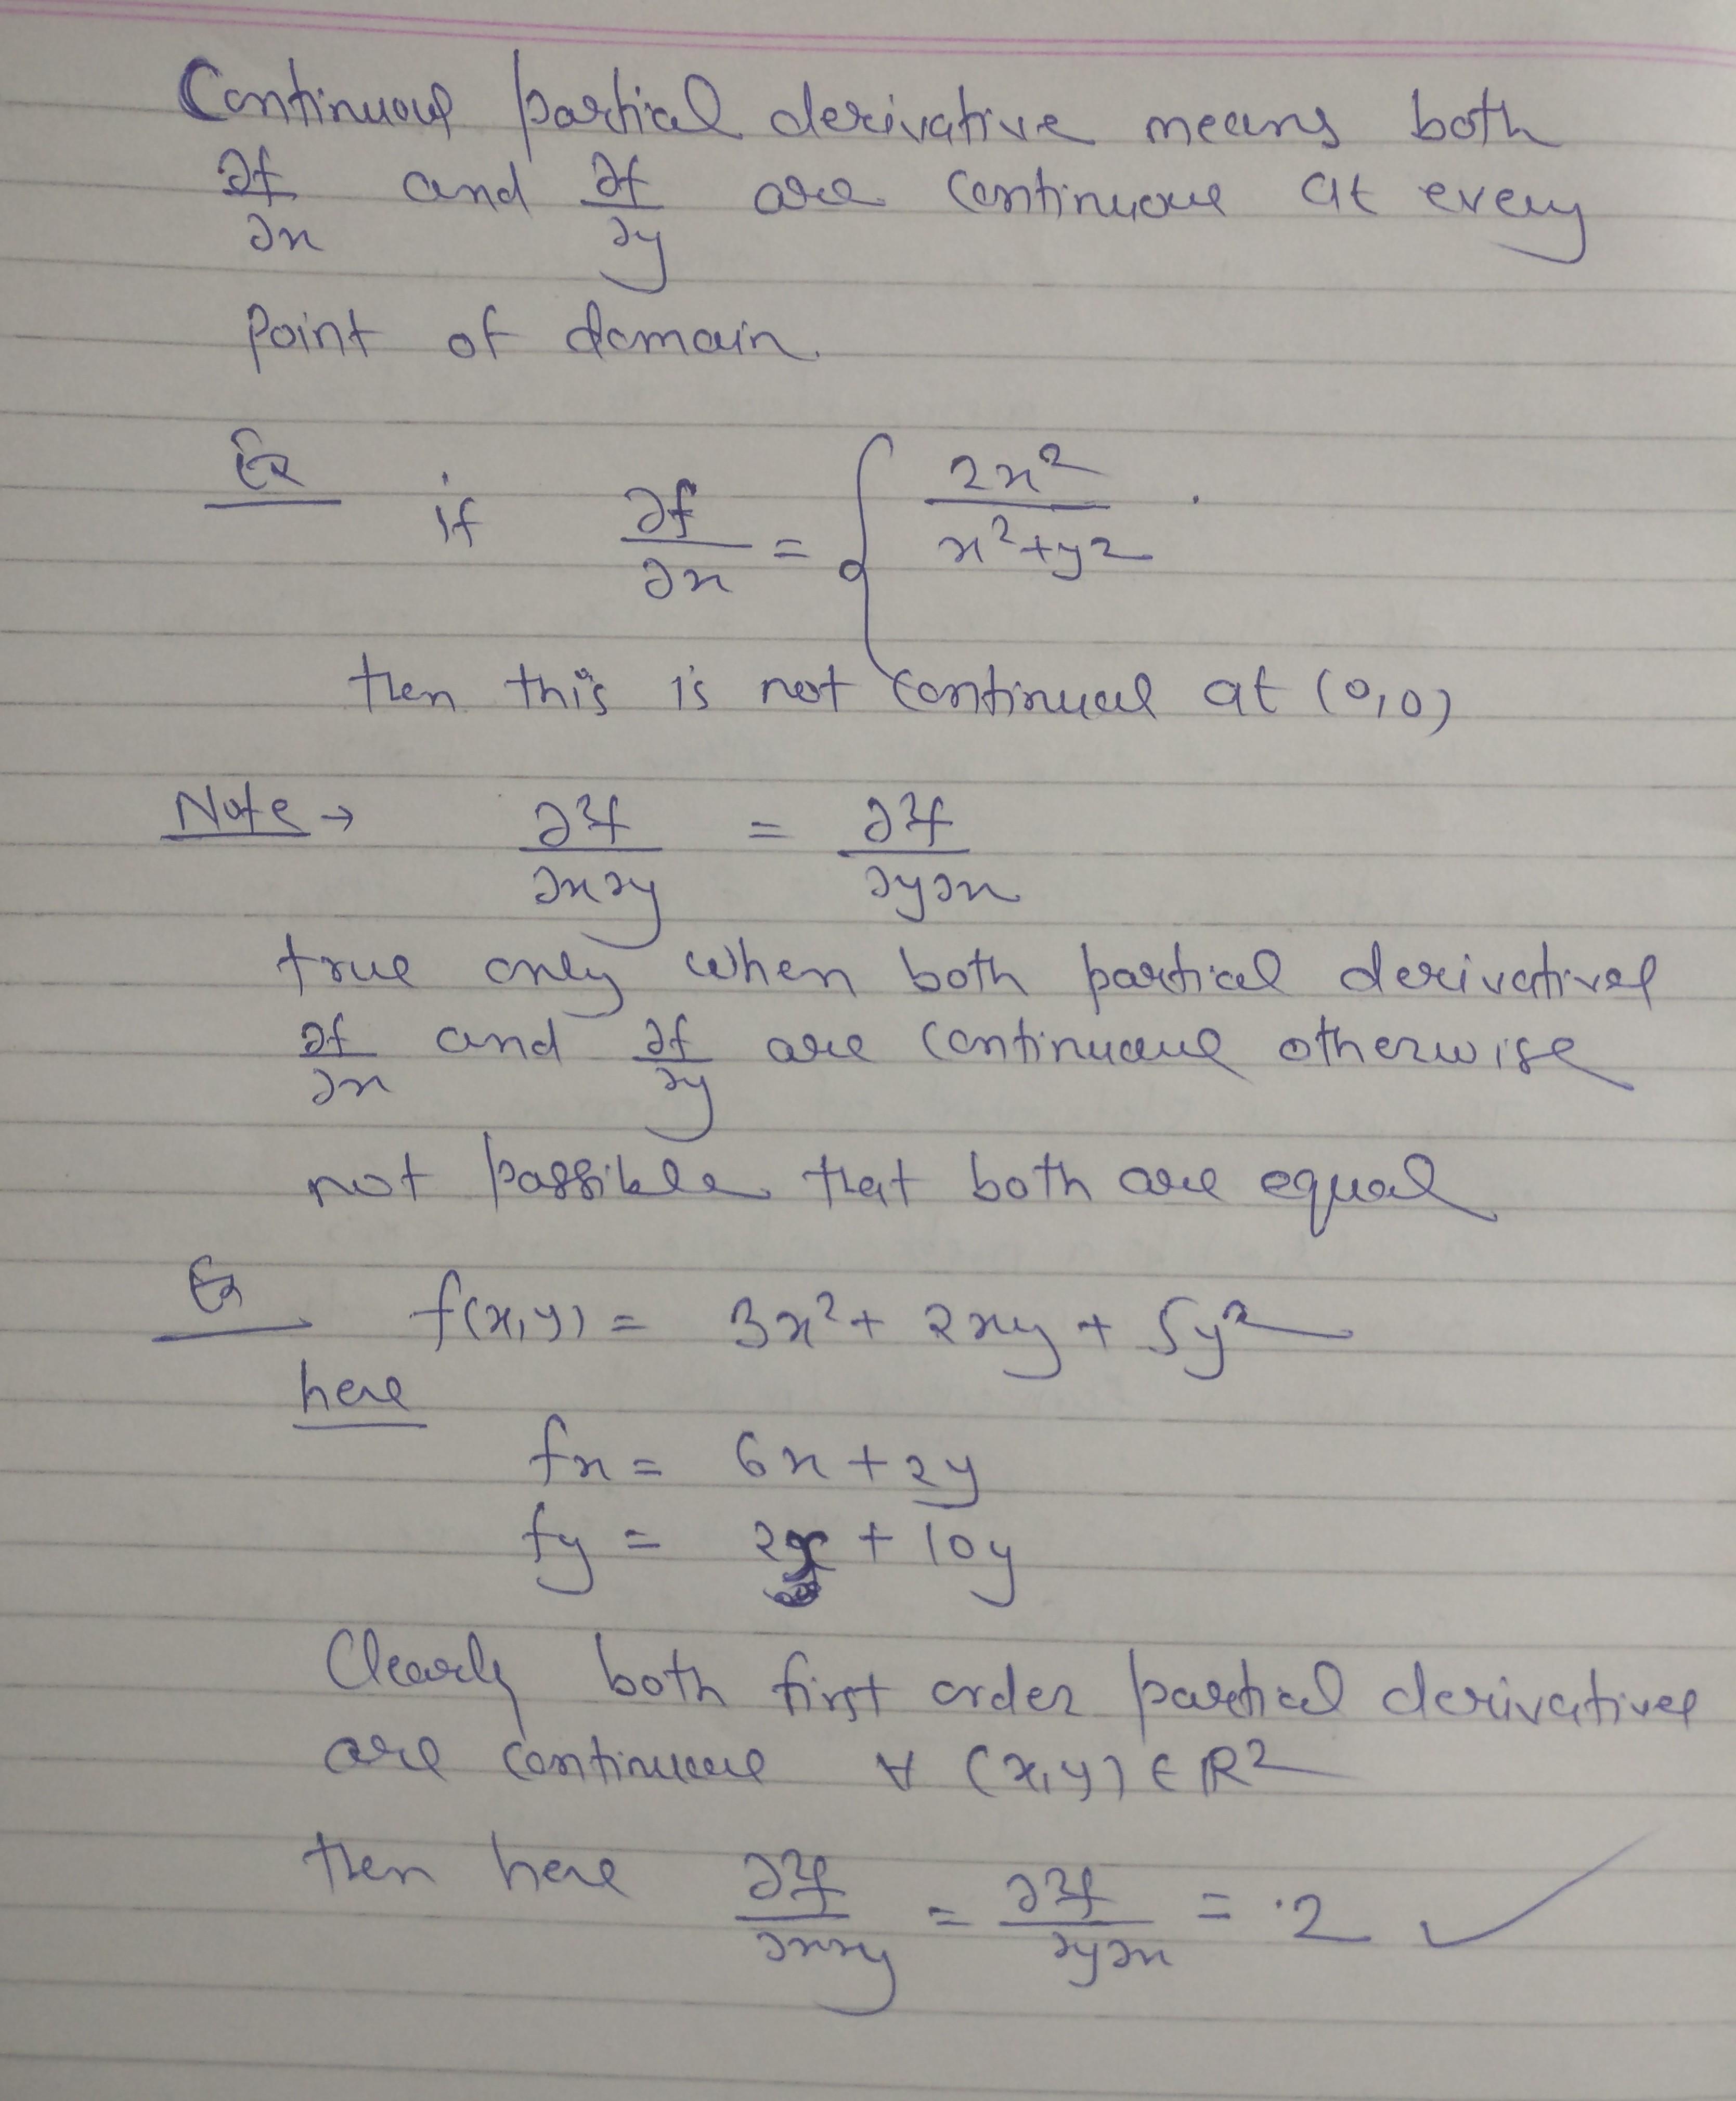 Continuous partial derivative means both
∂f/∂x and ∂f/∂y are continuous at every
point of domain.
Ex if ∂f/∂x = { 2x²/(x²+y²) .
then this is not continuous at (0,0)
Note → ∂²f/∂x∂y = ∂²f/∂y∂x
true only when both partial derivatives
∂f/∂x and ∂f/∂y are continuous otherwise
not possible that both are equal
Ex f(x,y) = 3x² + 2xy + 5y²
here
fx = 6x + 2y
fy = 2x + 10y
Clearly both first order partial derivatives
are continuous ∀ (x,y) ∈ R²
then here ∂²f/∂x∂y = ∂²f/∂y∂x = 2 ✓